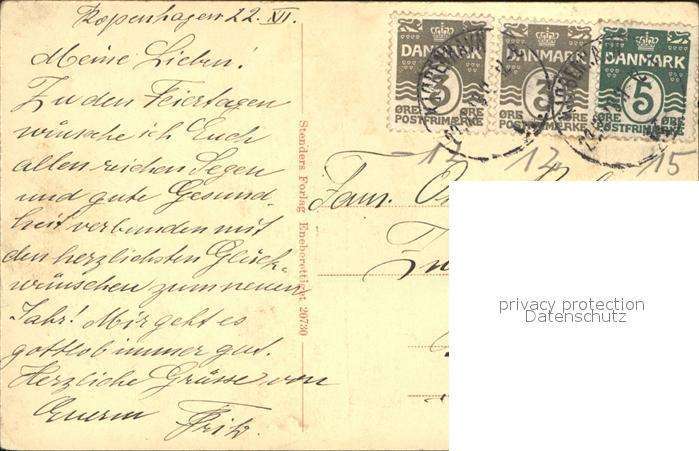 Kopenhagen 22. XII.
Meine Lieben!
Zu den Feiertagen
wünsche ich Euch
allen reichen Segen
und gute Gesund-
heit verbunden mit
den herzlichsten Glück-
wünschen zum neuen
Jahr! Mir geht es
gottlob immer gut.
Herzliche Grüsse von
Euerm Fritz.
Stenders Forlag Eneberettiget 20730
DANMARK
3
ØRE ØRE
POSTFRIMÆRKE
DANMARK
3
ØRE ØRE
POSTFRIMÆRKE
DANMARK
5
ØRE ØRE
POSTFRIMÆRKE
12 14 15
Fam.
privacy protection
Datenschutz